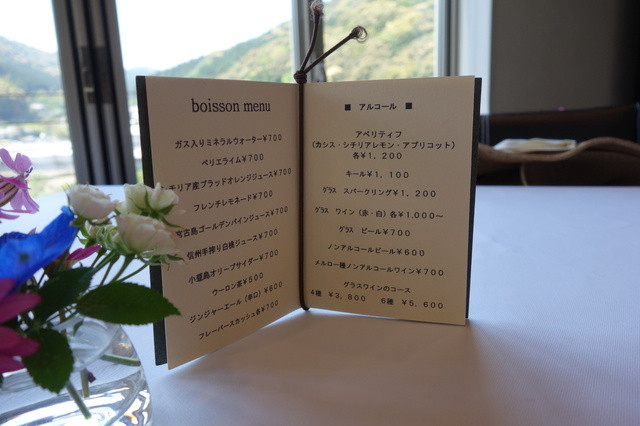 boisson menu
ガス入りミネラルウォーター¥700
ペリエライム¥700
チリア産ブラッドオレンジジュース¥700
フレンチレモネード¥700
宮古島ゴールデンパインジュース¥700
信州手搾り白桃ジュース¥700
小豆島オリーブサイダー¥700
ウーロン茶¥500
ジンジャーエール（辛口）¥600
フレーバースカッシュ各¥700
■ アルコール ■
アペリティフ
（カシス・シチリアレモン・アプリコット）
各¥1,200
キール¥1,100
グラス スパークリング¥1,200
グラス ワイン（赤・白）各¥1,000～
グラス ビール¥700
ノンアルコールビール¥600
メルロー種ノンアルコールワイン¥700
グラスワインのコース
4種 ¥3,800 6種 ¥5,600